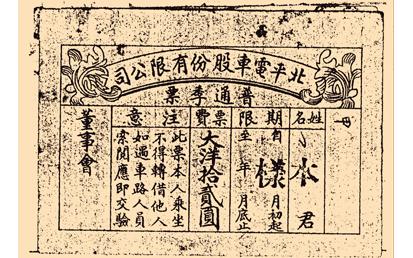 北平電車股份有限公司
普通季票
姓名
本
君
期限
自
樣
月初起
至年月底止
票費
大洋拾貳圓
注意
此票本人乘坐
不得轉借他人
如遇車路人員
索閱應即交驗
董事會